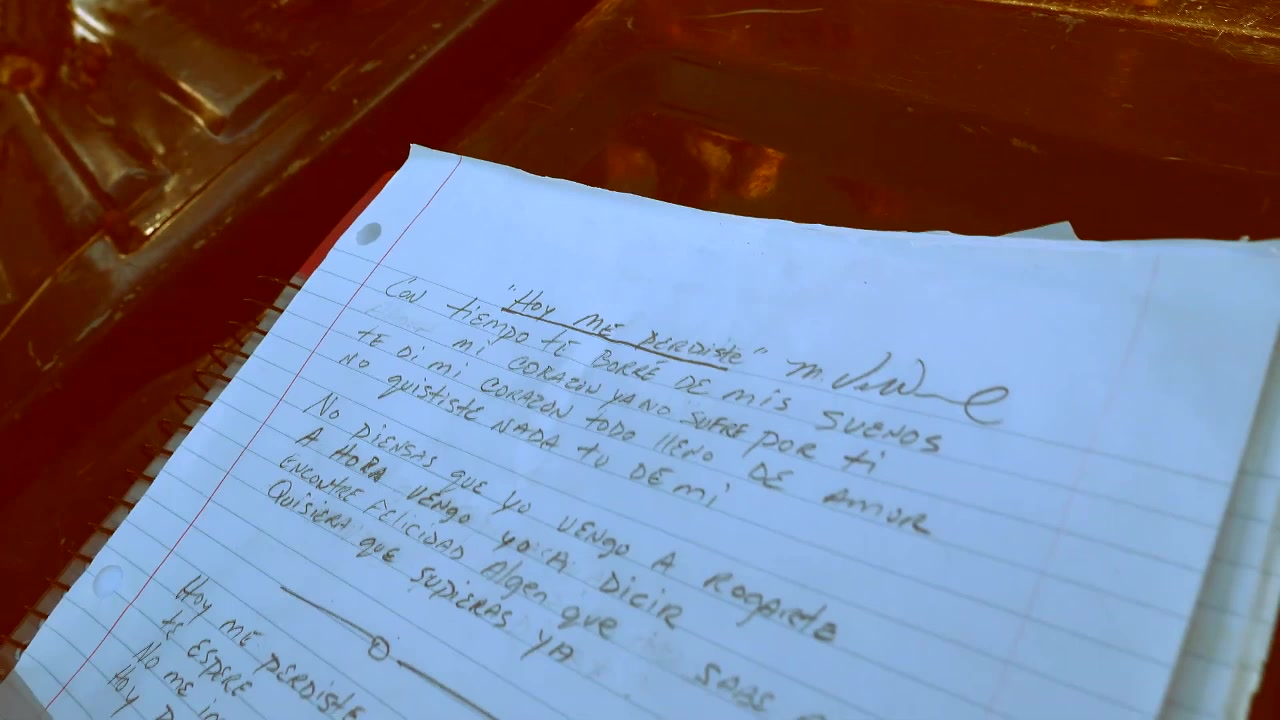 "Hoy ME PERDiste"
CON tiEMPO tE BORRÉ DE mis SUENOS
mi CORAZON YA NO SUFRE POR ti
tE Di mi CORAZON todo llENO DE AMOR
NO quisistE NADA tU DE mi
No PiENSAS quE Yo VENgo A ROgARtE
A HORA VENgO YO A DiCiR
ENCONtRE FEliCiDAD Algen quE SABE
QuisiERA quE SUPiERAS YA
Hoy ME PERDistE
tE ESPERE
No mE
Hoy